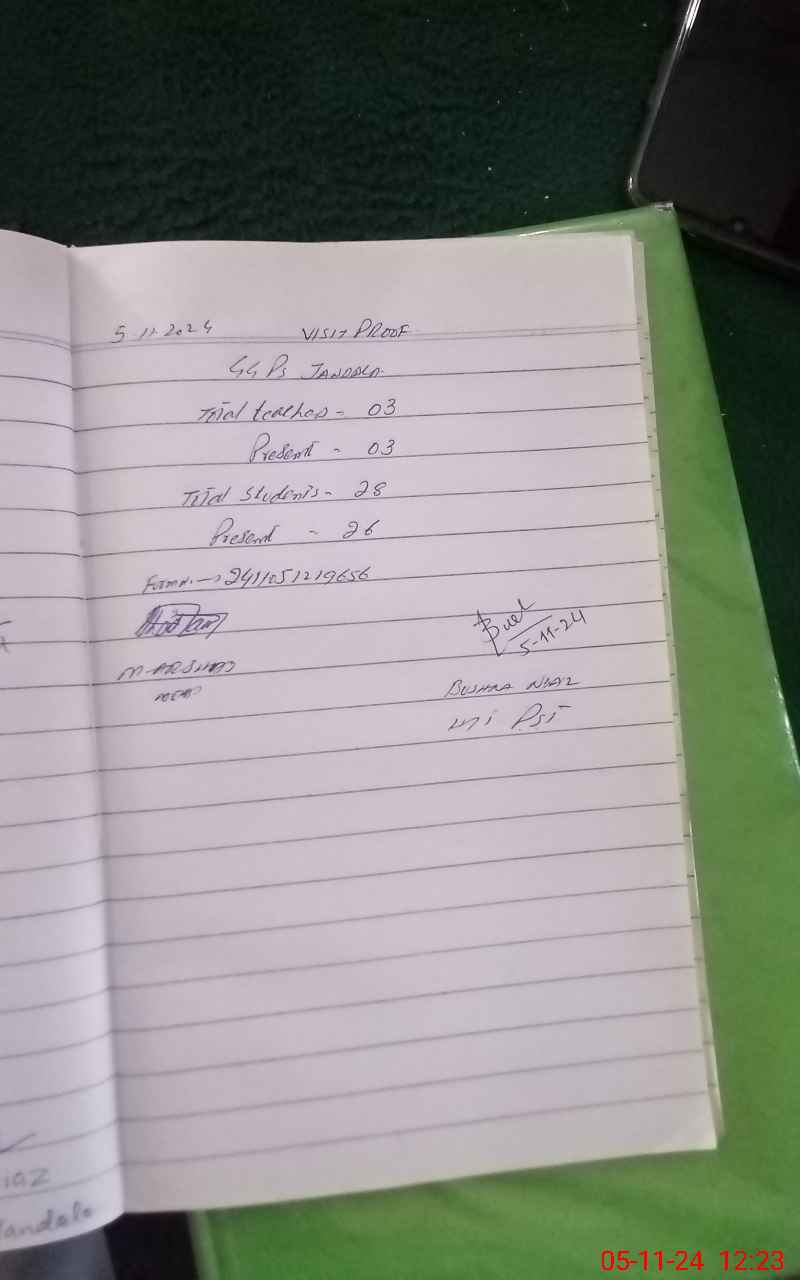 5-11-2024 VISIT PROOF
GGPS JANDALA
Total teachers - 03
Present - 03
Total Students - 28
Present - 26
Form n. → 2411051219656
M-ARSHAD
5-11-24
BUSHRA NIAZ
PST
iaz
Jandala
05-11-24 12:23